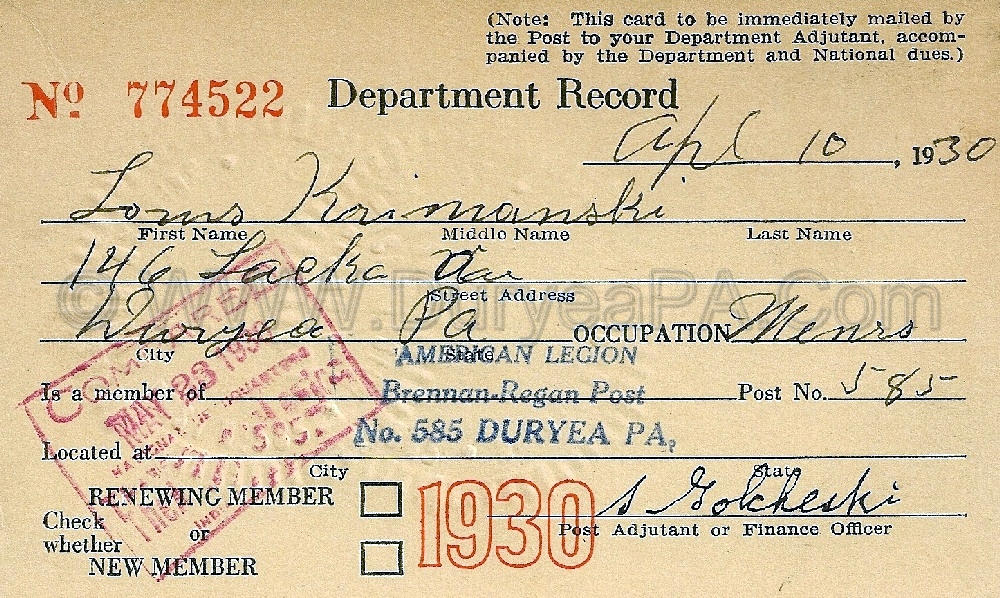 (Note: This card to be immediately mailed by
the Post to your Department Adjutant, accom-
panied by the Department and National dues.)
No 774522 Department Record
Apl 10, 1930
Louis Krimanski
First Name Middle Name Last Name
146 Lacka Ave
Street Address
©WWW.DuryeaPA.Com
Duryea Pa OCCUPATION Menrs
City State
AMERICAN LEGION
Is a member of Brennan-Regan Post Post No. 585
No. 585 DURYEA PA.
Located at
City State
COMPLETED
MAY 23 1930
NATIONAL HEADQUARTERS
RENEWING MEMBER
1930
S Golcheski
Check
whether or
Post Adjutant or Finance Officer
NEW MEMBER